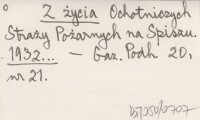 Z życia Ochotniczych
Straży Pożarnych na Spiszu.
1932... — Gaz. Podh. 20,
nr 21.